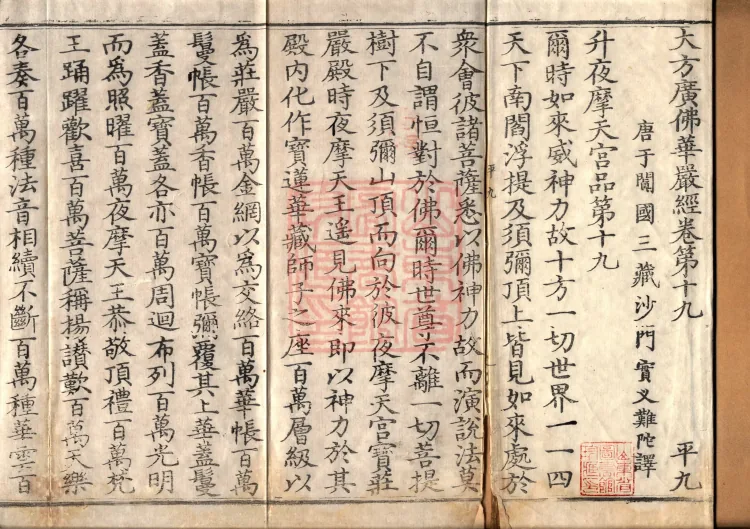 大方廣佛華嚴經卷第十九 平九
唐于闐國三藏沙門實叉難陀譯
升夜摩天宮品第十九
爾時如來威神力故十方一切世界一一四
天下南閻浮提及須彌頂上皆見如來處於
平九
衆會彼諸菩薩悉以佛神力故而演說法莫
不自謂恒對於佛爾時世尊不離一切菩提
樹下及須彌山頂而向於彼夜摩天宮寶莊
嚴殿時夜摩天王遙見佛來即以神力於其
殿內化作寶蓮華藏師子之座百萬層級以
爲莊嚴百萬金網以爲交絡百萬華帳百萬
鬘帳百萬香帳百萬寶帳彌覆其上華蓋鬘
蓋香蓋寶蓋各亦百萬周迴布列百萬光明
而爲照曜百萬夜摩天王恭敬頂禮百萬梵
王踊躍歡喜百萬菩薩稱揚讚歎百萬天樂
各奏百萬種法音相續不斷百萬種華雲百